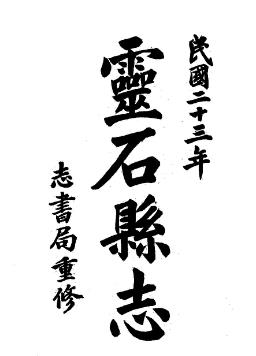 民國二十三年
靈石縣志
志書局重修